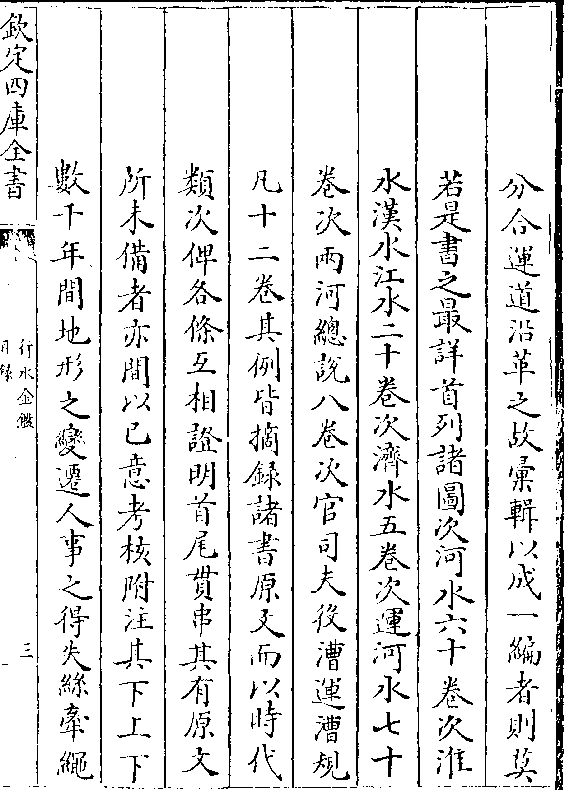 分合運道沿革之故彙輯以成一編者則莫
若是書之最詳首列諸圖次河水六十卷次淮
水漢水江水二十卷次濟水五卷次運河水七十
卷次兩河總說八卷次官司夫役漕運漕規
凡十二卷其例皆摘録諸書原文而以時代
類次俾各條互相證明首尾貫串其有原文
所未備者亦間以已意考核附注其下上下
數千年間地形之變遷人事之得失絲牽繩
欽定四庫全書
行水金鑑
目錄
三